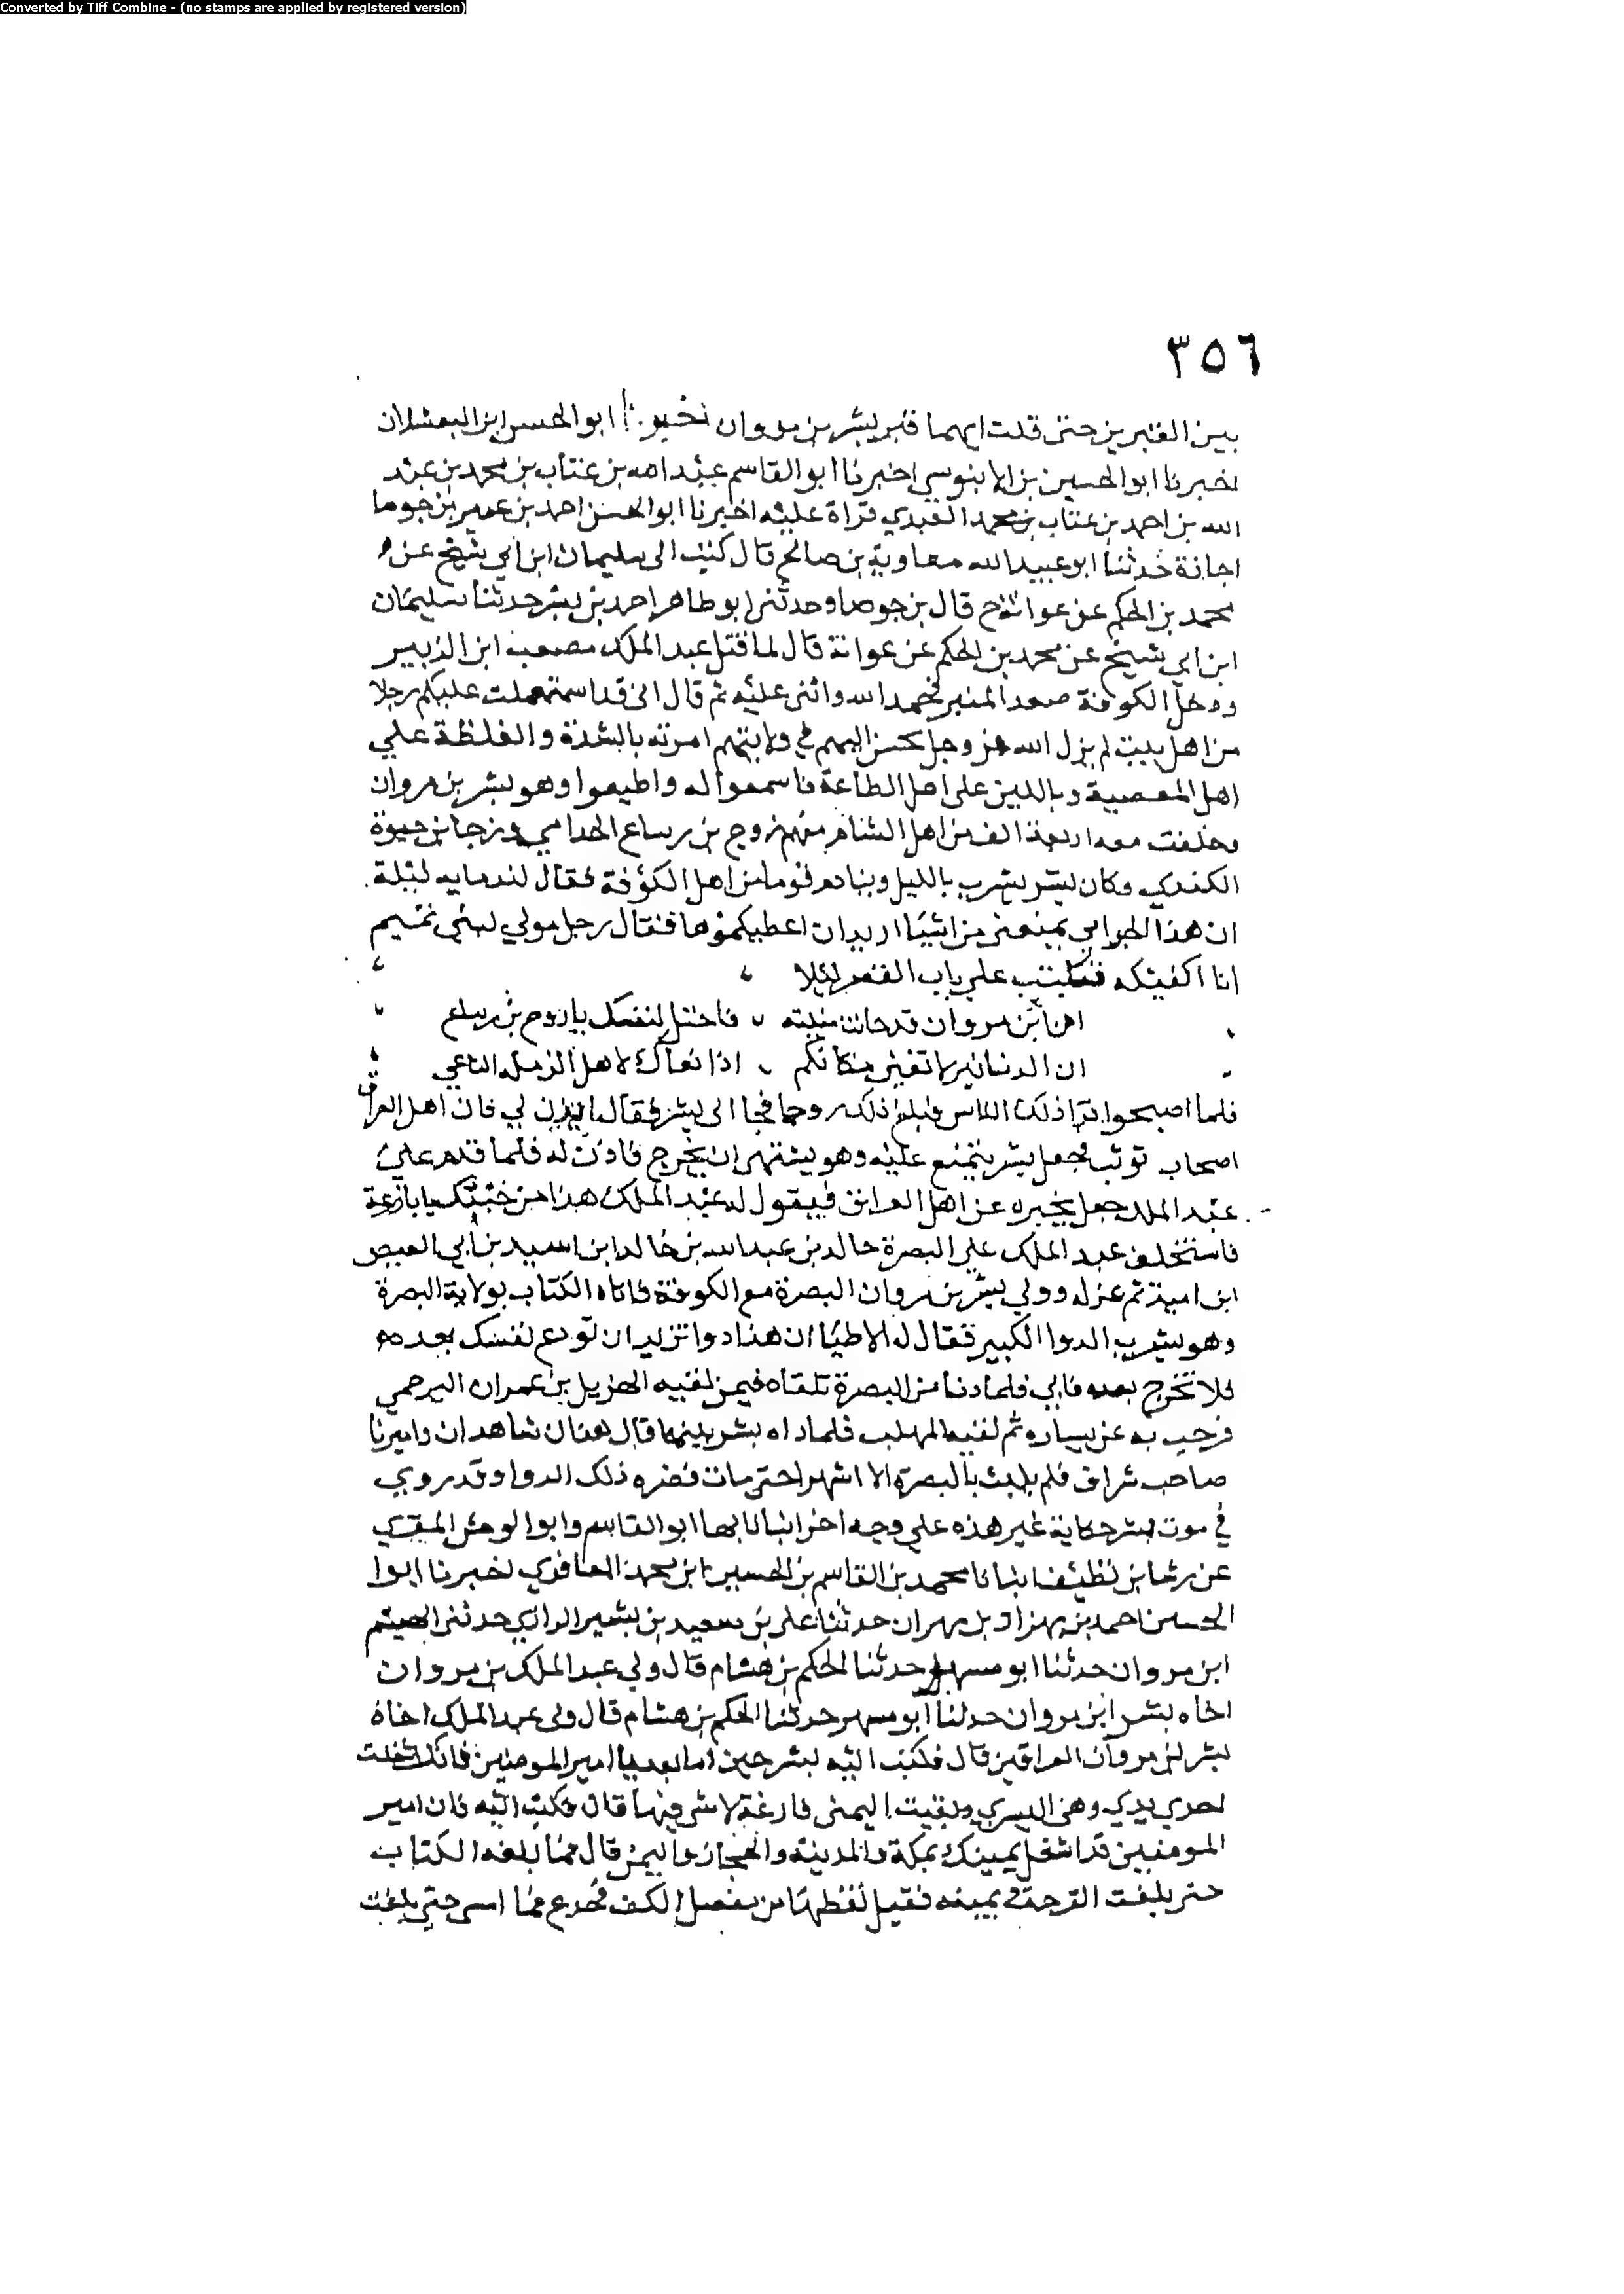 Converted by Tiff Combine - (no stamps are applied by registered version)
٣٥٦
بين القبرين حتى قلت ايهما قبر بشر بن مروان اخبرنا ابو الحسن ابن
اخبرنا ابو الحسين بن الابنوسي اخبرنا ابو القاسم عبد الله بن عتاب بن محمد بن عبد
الله بن احمد بن عتاب بن محمد العبدي قراة عليه اخبرنا ابو الحسن احمد بن عمير بن جوصا
اجازة حدثنا ابو عبيد الله معاوية بن صالح قال كتب الى سليمان ابن ابي شيخ عن
محمد بن الحكم عن عوانة ح قال بن جوصا وحدثني ابو طاهر احمد بن بشر حدثنا سليمان
ابن ابي شيخ عن محمد بن الحكم عن عوانة قال لما قتل عبد الملك مصعب ابن الزبير
ودخل الكوفة صعد المنبر فحمد الله واثنى عليه ثم قال اني قد استعملت عليكم رجلا
من اهل بيت لم يزل الله عز وجل يحسن اليهم في ولايتهم امرته بالشدة والغلظة علي
اهل المعصية وباللين على اهل الطاعة فاسمعوا له واطيعوا وهو بشر بن مروان
وخلفت معه اربعة الف من اهل الشام منهم روح بن رساع الحدامي ورجا بن حيوة
الكندي وكان بشر يشرب بالليل وينادم قوما من اهل الكوفة فقال لندمايه ليلة
ان هذا الجرامي يمنعني من اشيا اريد ان اعطيكموها فقال رجل مولي لبني تميم
انا اكفيكه فكتب علي باب القصر ليلا
ان بن مروان قد حانت منيته فاحتل لنفسك يا روح بن رساع
ان الدنانير لا تغني مكانكم اذا نعاك لاهل الرملة الناعي
فلما اصبحوا قرا ذلك الناس فبلغ ذلك روحا فجا الى بشر فقال ايذن لي فان اهل العراق
اصحاب توثب فجعل بشر يتمنع عليه وهو يشتهي ان يخرج فاذن له فلما قدم على
عبد الملك جعل يخبره عن اهل العراق فيقول له عبد الملك هذا من خبتك يا بازرعة
فاستخلف عبد الملك على البصرة خالد بن عبد الله بن خالد ابن اسيد بن ابي العيص
ابن امية ثم عزله وولي بشر بن مروان البصرة مع الكوفة فاتاه الكتاب بولاية البصرة
وهو يشرب الدوا الكبير فقال له الاطبا ان هذا دوا تريد ان تودع نفسك بعده
فلا تخرج بعده فابي فلما دنا من البصرة تلقاه فيمن لقيه الهزيل بن عمران البرجمي
فرحب به عن يساره ثم لقيه المهلب فلما راه بشر بينهما قال هذان شاهدان واميرنا
صاحب شراق فلم يلبث بالبصرة الا اشهرا حتى مات فضره ذلك الدوا وقد روي
في موت بشر حكاية غير هذه علي وجه اخر انبانا بها ابو القاسم وابو الوحش المقري
عن رشا بن نظيف انبانا محمد بن القاسم بن الحسين ابن محمد العافري اخبرنا ابوا
الحسن احمد بن بهزاد بن مهران حدثنا على بن سعيد بن بشير الرازي حدثني الهيثم
ابن مروان حدثنا ابو مسهر حدثنا الحكم بن هشام قال ولي عبد الملك بن مروان
اخاه بشر ابن مروان حدثنا ابو مسهر حدثنا الحكم بن هشام قال ولى عبد الملك اخاه
بشر بن مروان العراقين قال فكتب اليه بشر حين اما بعد يا امير المومنين فانك شغلت
احدي يدي وهي اليسري وبقيت اليمنى فارغة لا شي فيها قال فكتب اليه فان امير
المومنين قد اشغل يمينك بمكة والمدينة والحجاز واليمن قال فما بلغه الكتاب
حتى بلغت القرحة في يمينه فقيل له نقطعها من مفصل الكف فجزع فما امسى حتى بلغت